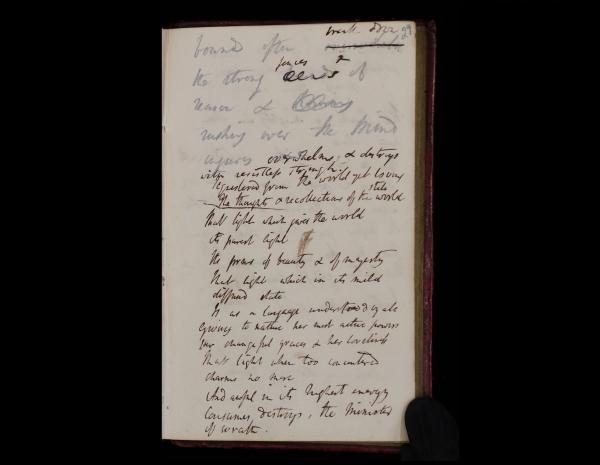 break down 29
bound after
fences &
the strong of
reason &
rushing over the mind
injures overwhelms, & destroys
with resistless strength.
Sequestered from the world yet loving
still
The thoughts & recollections of the world
That light which gives the world
its purest light
The forms of beauty & of majesty
That light which in its mild
diffused state
Is as a language understood by all
Giving to nature her most active powers
her changeful graces & her loveliness
That light when too concentered
charms no more
And awful in its highest energy
Consumes, destroys, the Minister
of wrath.